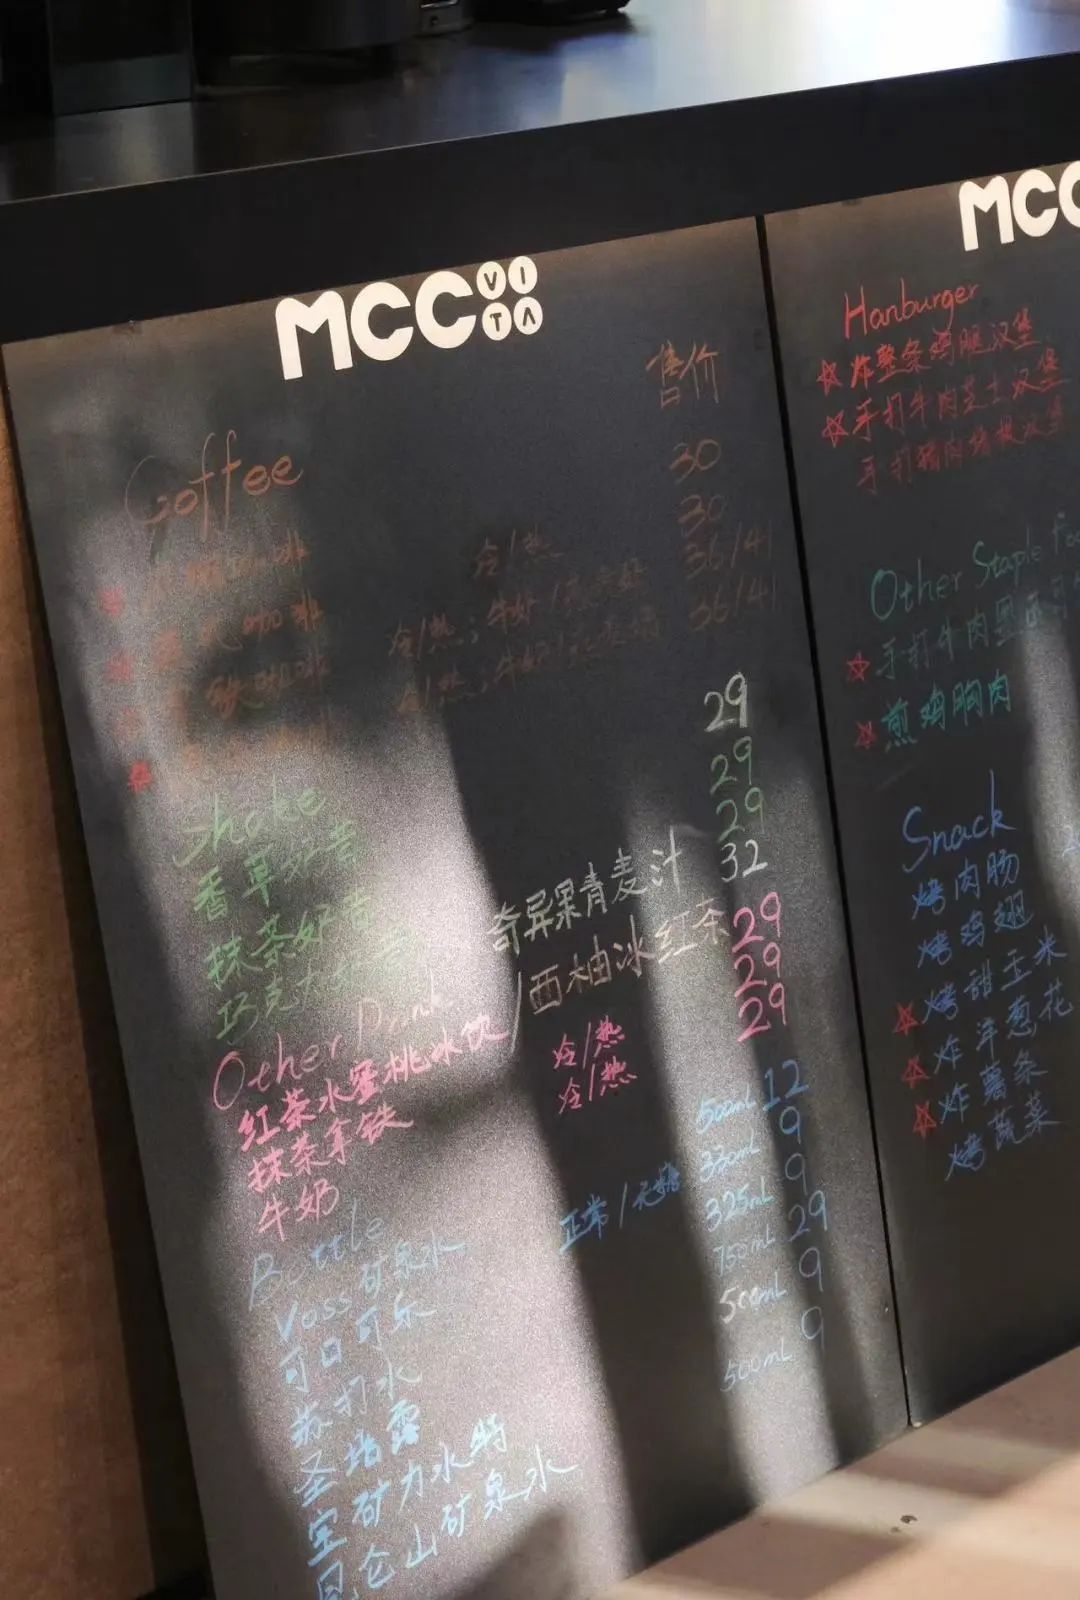 MCC VITA
售价
Coffee
30
咖啡 冷/热 30
咖啡 冷/热;牛奶/ 36/41
铁 冷/热;牛奶/ 36/41
Shake 29
香草奶昔 29
抹茶奶昔 29
巧克力 奇异果青麦汁 32
Other Drink /西柚冰红茶 29
红茶水蜜桃冰饮 冷/热 29
抹茶拿铁 冷/热 29
牛奶
Bottle 500mL 12
Voss矿泉水 正常/无糖 330mL 9
可口可乐 325mL 9
苏打水 750mL 29
圣培露 500mL 9
宝矿力水特 500mL 9
昆仑山矿泉水
MCC
Hanburger
炸整条鸡腿汉堡
手打牛肉芝士汉堡
手打猪肉 汉堡
Other Staple Fo
手打牛肉
煎鸡胸肉
Snack
烤肉肠
烤鸡翅
烤甜玉米
炸洋葱花
炸薯条
烤蔬菜